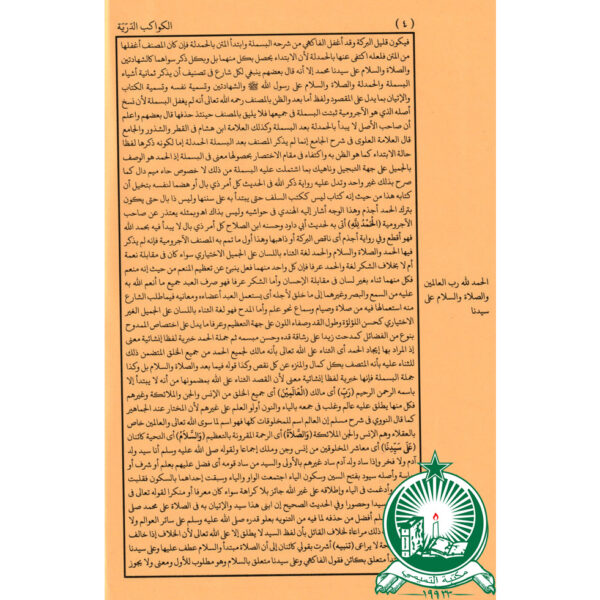 الكواكب الدرّيّة
( ٤ )
فيكون قليل البركة وقد أغفل الفاكهي من شرحه البسملة وابتدأ المتن بالحمدلة فإن كان المصنف أغفلها
من المتن فلعله اكتفى عنها بالحمدلة لأن الابتداء يحصل بكل منهما بل وبكل ذكر سواهما كالشهادتين
والصلاة والسلام على سيدنا محمد إلا أنه قال بعضهم ينبغي لكل شارع في تصنيف أن يذكر ثمانية أشياء
البسملة والحمدلة والصلاة والسلام على رسول الله ﷺ والشهادتين وتسمية نفسه وتسمية الكتاب
والإتيان بما يدل على المقصود ولفظ أما بعد والظن بالمصنف رحمه الله تعالى أنه لم يغفل البسملة لأن نسخ
أصله الذي هو الآجرومية ثبتت البسملة في جميعها فلا يليق بالمصنف حينئذ حذفها قال بعضهم واعلم
أن صاحب الأصل لا يبدأ بالحمدلة بعد البسملة وكذلك العلامة ابن هشام في القطر والشذور والجامع
قال العلامة العلوي في شرح الجامع إنما لم يذكر المصنف بعد البسملة الحمدلة إما لكونه ذكرها لفظا
حالة الابتداء كما هو الظن به واكتفاء في مقام الاختصار بحصولها معنى في البسملة إذ الحمد هو الوصف
بالجميل على جهة التبجيل وناهيك بما اشتملت عليه البسملة من ذلك لا خصوص جاء ميم دال كما
صرح بذلك غير واحد وتدل عليه رواية ذكر الله في الحديث كل أمر ذي بال أو هضما لنفسه بتخيل أن
كتابه هذا من حيث إنه كتاب ليس ككتب السلف حتى يبتدأ به على سننها وليس ذا بال حتى يكون
بترك الحمد أجذم وهذا الوجه أشار إليه الهندي في حواشيه وليس بذاك اهـ وبمثله يعتذر عن صاحب
الآجرومية (الْحَمْدُ لِلَّهِ) أتى به لحديث أبي داود وحسنه ابن الصلاح كل أمر ذي بال لا يبدأ فيه بحمد الله
فهو أقطع وفي رواية أجذم أي ناقص البركة أو ذاهبها وهذا أول ما تمم به المصنف الآجرومية فإنه لم يذكر
فيها الحمد والصلاة والسلام والحمد لغة الثناء باللسان على الجميل الاختياري سواء كان في مقابلة نعمة
أم لا بخلاف الشكر لغة والحمد عرفا فإن كل واحد منهما فعل ينبئ عن تعظيم المنعم من حيث إنه منعم
فكل منهما ثناء بغير لسان في مقابلة الإحسان وأما الشكر عرفا فهو صرف العبد جميع ما أنعم الله به
عليه من السمع والبصر وغيرهما إلى ما خلق لأجله أي يستعمل العبد أعضاءه ومعانيه فيما طلب الشارع
منه استعمالها فيه من صلاة وصيام وسماع نحو علم وأما المدح فهو لغة الثناء باللسان على الجميل الغير
الاختياري كحسن اللؤلؤة وطول القد وصفاء اللون على جهة التعظيم وعرفا ما يدل على اختصاص الممدوح
بنوع من الفضائل كمدحت زيدا على رشاقة قده وحسن مبسمه ثم جملة الحمد لفظا خبرية إنشائية معنى
إذ المراد بها إيجاد الحمد أي الثناء على الله تعالى بأنه مالك لجميع الحمد من جميع الخلق المتضمن ذلك
الثناء عليه بأنه المتصف بكل كمال والمنزه عن كل نقص وكذا قوله فيما بعد والصلاة والسلام بل وكذا
جملة البسملة فإنها خبرية لفظا إنشائية معنى لأن القصد الثناء على الله بمضمونها من أنه لا يبتدأ إلا
باسمه الرحمن الرحيم (رَبِّ) أي مالك (الْعَالَمِينَ) أي جميع الخلق من الإنس والجن والملائكة وغيرهم
فكل منها يطلق عليه عالم وغلب في جمعه بالياء والنون أولو العلم على غيرهم لأن المختار عند الجماهير
كما قال النووي في شرح مسلم إن العالم اسم للمخلوقات كلها فهو اسم لما سوى الله تعالى والعالمين خاص
بالعقلاء وهم الإنس والجن والملائكة (وَالصَّلَاةُ) أي الرحمة المقرونة بالتعظيم (وَالسَّلَامُ) أي التحية كائنان
(عَلَى سَيِّدِنَا) أي معاشر المخلوقين من إنس وجن وملك إجماعا ولقوله صلى الله عليه وسلم أنا سيد ولد
آدم ولا فخر وإذا ساد ولد آدم ساد غيرهم بالأولى والسيد من ساد قومه أي فضل عليهم بعلم أو شرف أو
راسة وأصله سيود بفتح السين وسكون الياء اجتمعت الواو والياء وسبقت إحداهما بالسكون فقلبت
وأدغمت في الياء وإطلاقه على غير الله جائز بلا كراهة سواء كان معرفا أو منكرا لقوله تعالى في
سيدا وحصورا وفي الحديث الصحيح إن ابني هذا سيد والإتيان به في الصلاة على محمد صلى
لم أفضل من حذفه لما فيه من التنويه بعلو قدره صلى الله عليه وسلم على سائر العوالم ولا
ذلك مراعاة لخلاف القائل بأن لفظ السيد لا يطلق إلا على الله تعالى لأن الخلاف إذا خالف
حة لا يراعى (تنبيه) أشرت بقولي كائنان إلى أن الصلاة مبتدأ والسلام عطف عليها وعلى سيدنا
متعلق بكائن فقول الفاكهي وعلى سيدنا متعلق بالسلام وهو مطلوب للأول ومعنى ولا يجوز
الحمد لله رب العالمين
والصلاة والسلام على
سيدنا
مكتبة التسليمى
١٩٢٣